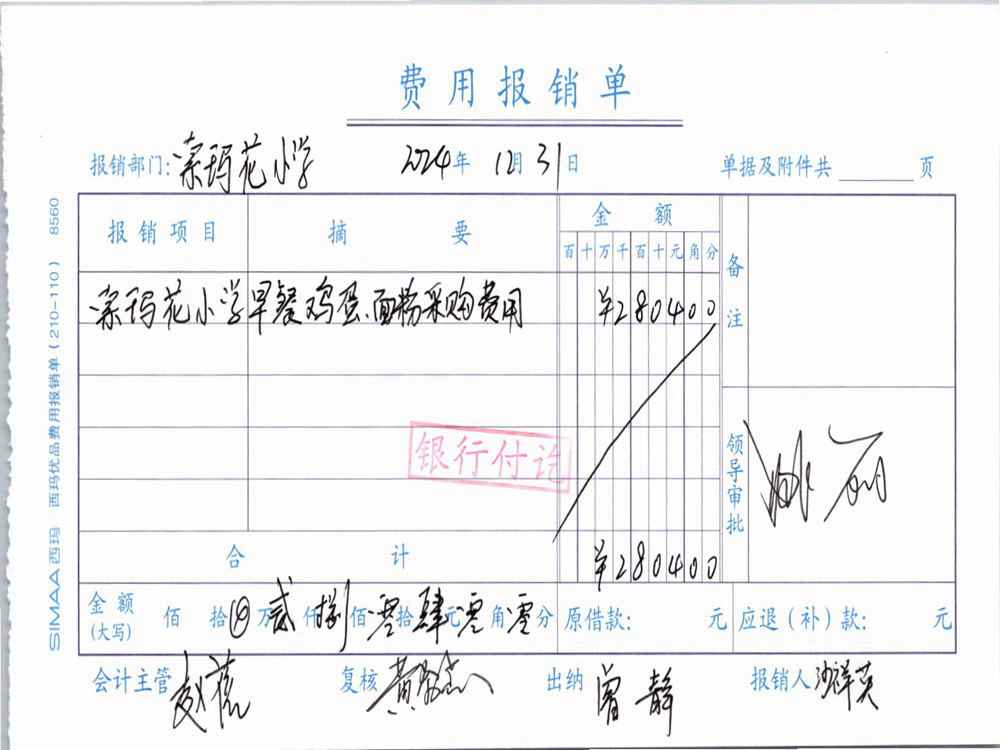 费用报销单
报销部门:索玛花小学 2024年 12月 31日 单据及附件共 页
报销项目 摘要 金额 备注
百十万千百十元角分
索玛花小学早餐鸡蛋、面粉采购费用 ¥280400
银行付讫
领导审批
合计 ¥280400
金额(大写) 佰 拾⊗万 贰仟 捌佰 零拾 肆元 零角 零分 原借款: 元 应退(补)款: 元
会计主管 赵 复核 黄 出纳 曾静 报销人 沙祥英
SIMAA西玛 西玛优品费用报销单(210-110) 8560